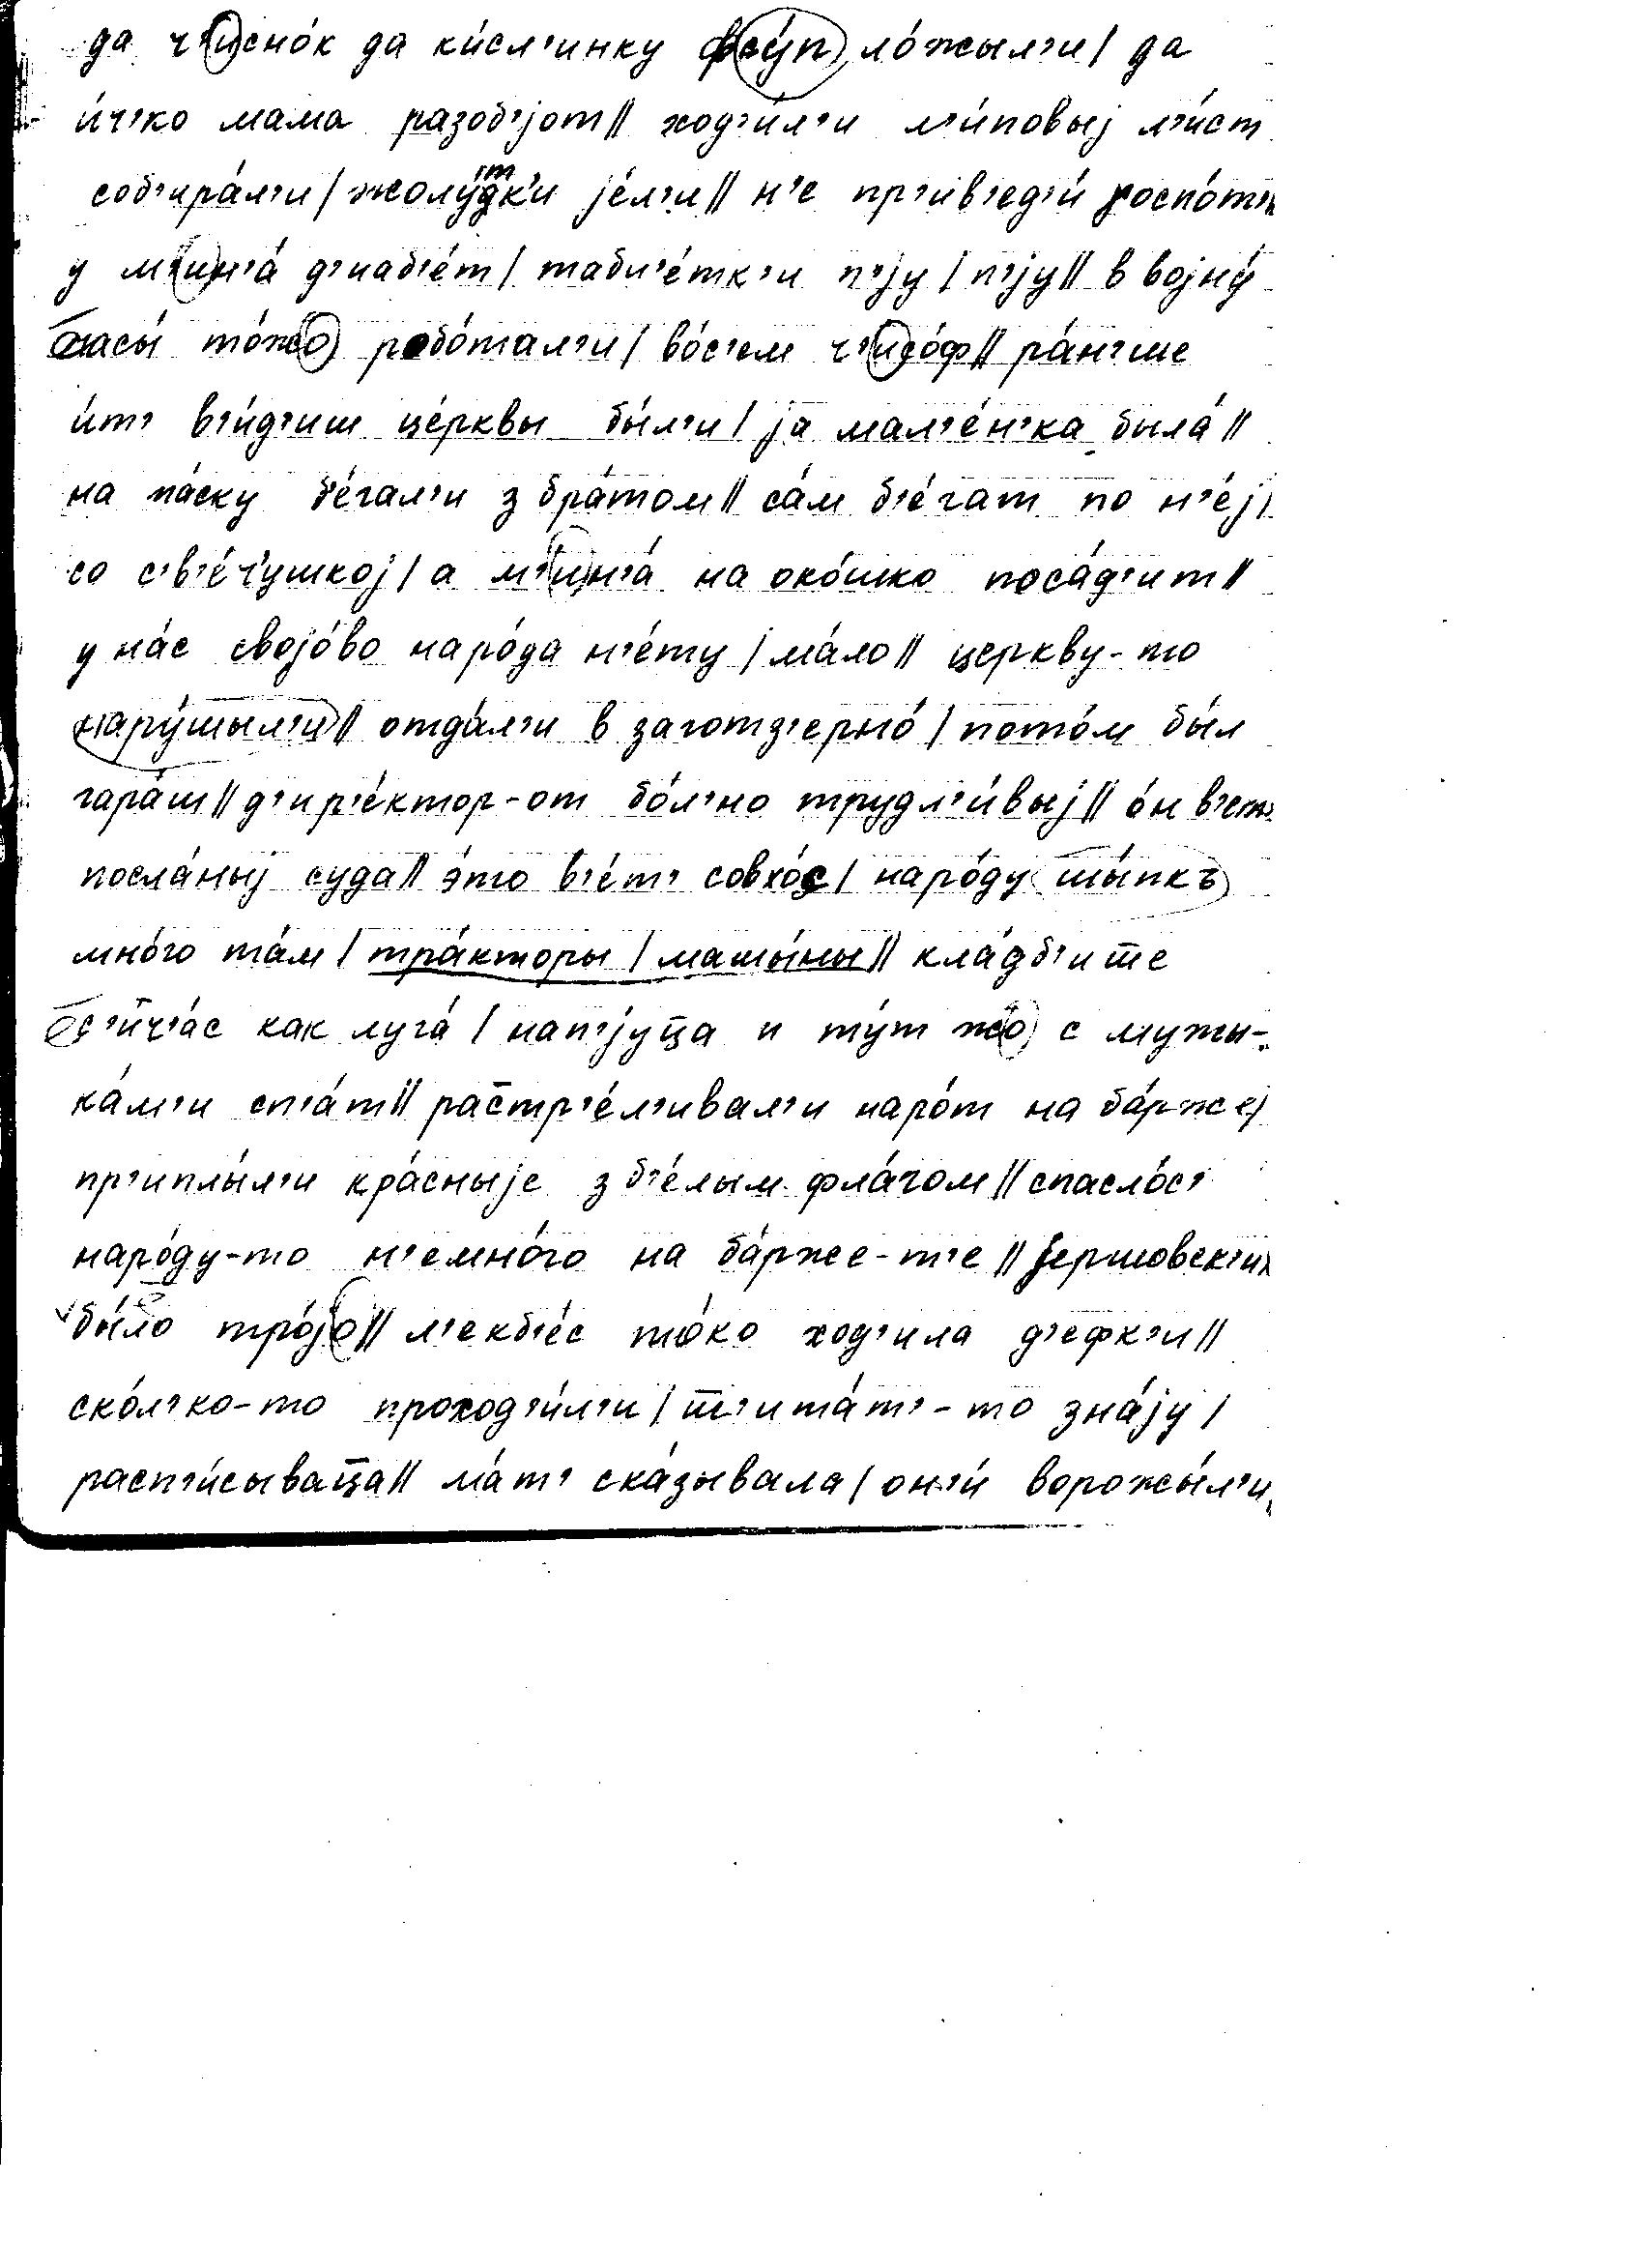 да ч'исно́к да ки́сл'инку фсу́п ло́жыл'и / да
и́ч'ко мама разоб'jот // ход'и́л'и л'и́повыj л'и́ст
соб'ира́л'и / жолу́тк'и jе́л'и // н'е пр'ив'ед'и́ γоспо́т'
у м'ин'а́ д'иаб'е́т / табл'е́тк'и п'jу / п'jу // в воjну́
часы́ то́жо робо́тал'и / во́с'ем ч'исо́ф // ра́н'ше
и́т' в'и́д'иш це́рквы бы́л'и / jа мал'е́н'ка была́ //
на па́ску б'е́гал'и з бра́том // са́м б'е́гат по н'е́j /
со с'в'е́ч'ушкоj / а м'ин'а́ на око́шко поса́д'ит //
у на́с своjо́во наро́да н'е́ту / ма́ло // церкву-то
нару́шыл'и // отда́л'и в заготз'ерно́ / пото́м бы́л
гара́ш // д'ир'е́ктор-от бо́л'но трудл'и́выj // о́н в'ет'
посла́ныj суда // э́то в'е́т' совхо́с / наро́ду шы́пкъ
мно́го та́м / тра́кторы / машы́ны // кла́дб'ише
с'ич'а́с как луга́ / нап'jуца и ту́т жо с мужы-
ка́м'и сп'а́т // растр'е́л'ивал'и наро́т на ба́рже /
пр'иплы́л'и кра́сныjе з б'е́лым фла́гом // спасло́с'
наро́ду-то н'емно́го на ба́рже-т'е // jершовск'их
бы́ло тро́jо // л'екб'е́с то́ко ход'ила д'ефк'и //
ско́л'ко-то проход'и́л'и / ш'ита́т'-то зна́jу /
расп'и́сываца // ма́т' ска́зывала / он'и́ ворожы́л'и